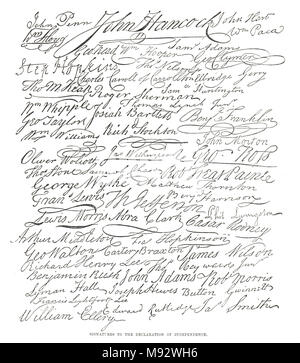 John Penn John Hancock John Hart
Wm Hooper Saml Adams Wm Paca
Geo Read Geo Clymer
Step. Hopkins Tho Nelson jr
Charles Carroll of Carrollton Elbridge Gerry
Tho M:Kean Roger Sherman Saml Huntington
Wm Whipple Thomas Lynch Junr
Geo Taylor Josiah Bartlett Benj Franklin
Wm Williams Richd Stockton John Morton
Oliver Wolcott Jno Witherspoon Geo Ross
Thos Stone Robt Treat Paine
George Wythe Matthew Thornton
Frans Lewis Th Jefferson Benj Harrison
Lewis Morris Abra Clark Caesar Rodney
Phil. Livingston
Arthur Middleton Fras Hopkinson
Geo Walton Carter Braxton James Wilson
Richard Henry Lee Thos Heyward Junr
Benjamin Rush John Adams Robt Morris
Lyman Hall Joseph Hewes Button Gwinnett
Francis Lightfoot Lee
William Ellery Edward Rutledge Jas Smith
SIGNATURES TO THE DECLARATION OF INDEPENDENCE.
alamy
Image ID: M92WH6
www.alamy.com